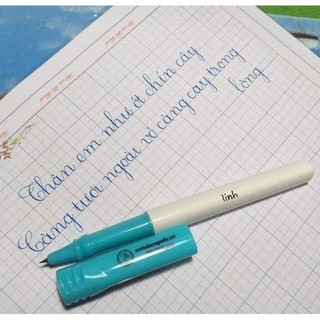 Thân em như ớt chín cây
Càng tươi ngoài vỏ càng cay trong
lòng
linh